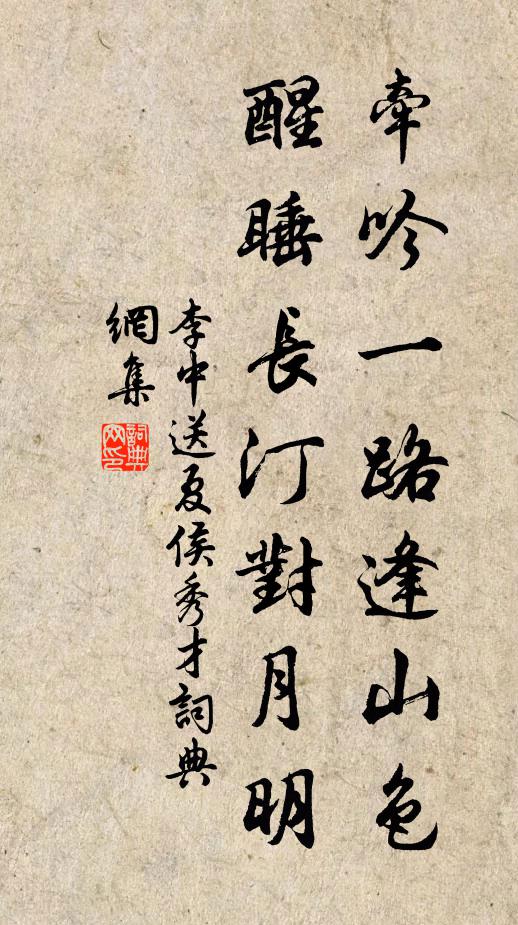 牽吟一路逢山色
醒睡長汀對月明
李中送夏侯秀才詞典
網集
詞典
网印